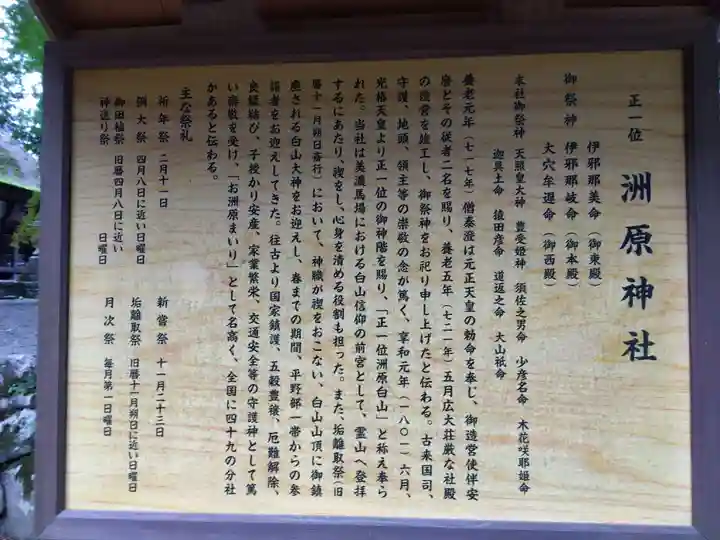 正一位 洲原神社
御祭神 伊邪那美命(御東殿)
伊邪那岐命(御本殿)
大穴牟遅命(御西殿)
末社御祭神 天照皇大神 豊受姫神 須佐之男命 少彦名命 木花咲耶姫命
迦具土命 猿田彦命 道返之命 大山祇命
養老元年(七一七年)僧泰澄は元正天皇の勅命を奉じ、御造営使伴安
麿とその従者二名を賜り、養老五年(七二一年)五月広大荘厳な社殿
の造営を竣工し、御祭神をお祀り申し上げたと伝わる。古来国司、
守護、地頭、領主等の崇敬の念が篤く、享和元年(一八〇一)六月、
光格天皇より正一位の御神階を賜り、「正一位洲原白山」と称え奉ら
れた。当社は美濃馬場における白山信仰の前宮として、霊山へ登拝
するにあたり、禊をし、心身を清める役割も担った。また、垢離取祭(旧
暦十一月朔日斎行)において、神職が禊をおこない、白山山頂に御鎮
座される白山大神をお迎えし、春までの期間、平野部一帯からの参
詣者をお迎えしてきた。往古より国家鎮護、五穀豊穣、厄難解除、
良縁結び、子授かり安産、家業繁栄、交通安全等の守護神として篤
い崇敬を受け、「お洲原まいり」として名高く、全国に四十九の分社
があると伝わる。
主な祭礼
祈年祭 二月十一日 新嘗祭 十一月二十三日
例大祭 四月八日に近い日曜日 垢離取祭 旧暦十一月朔日に近い日曜日
御田植祭 旧暦四月八日に近い 月次祭 毎月第一日曜日
神造り祭 日曜日